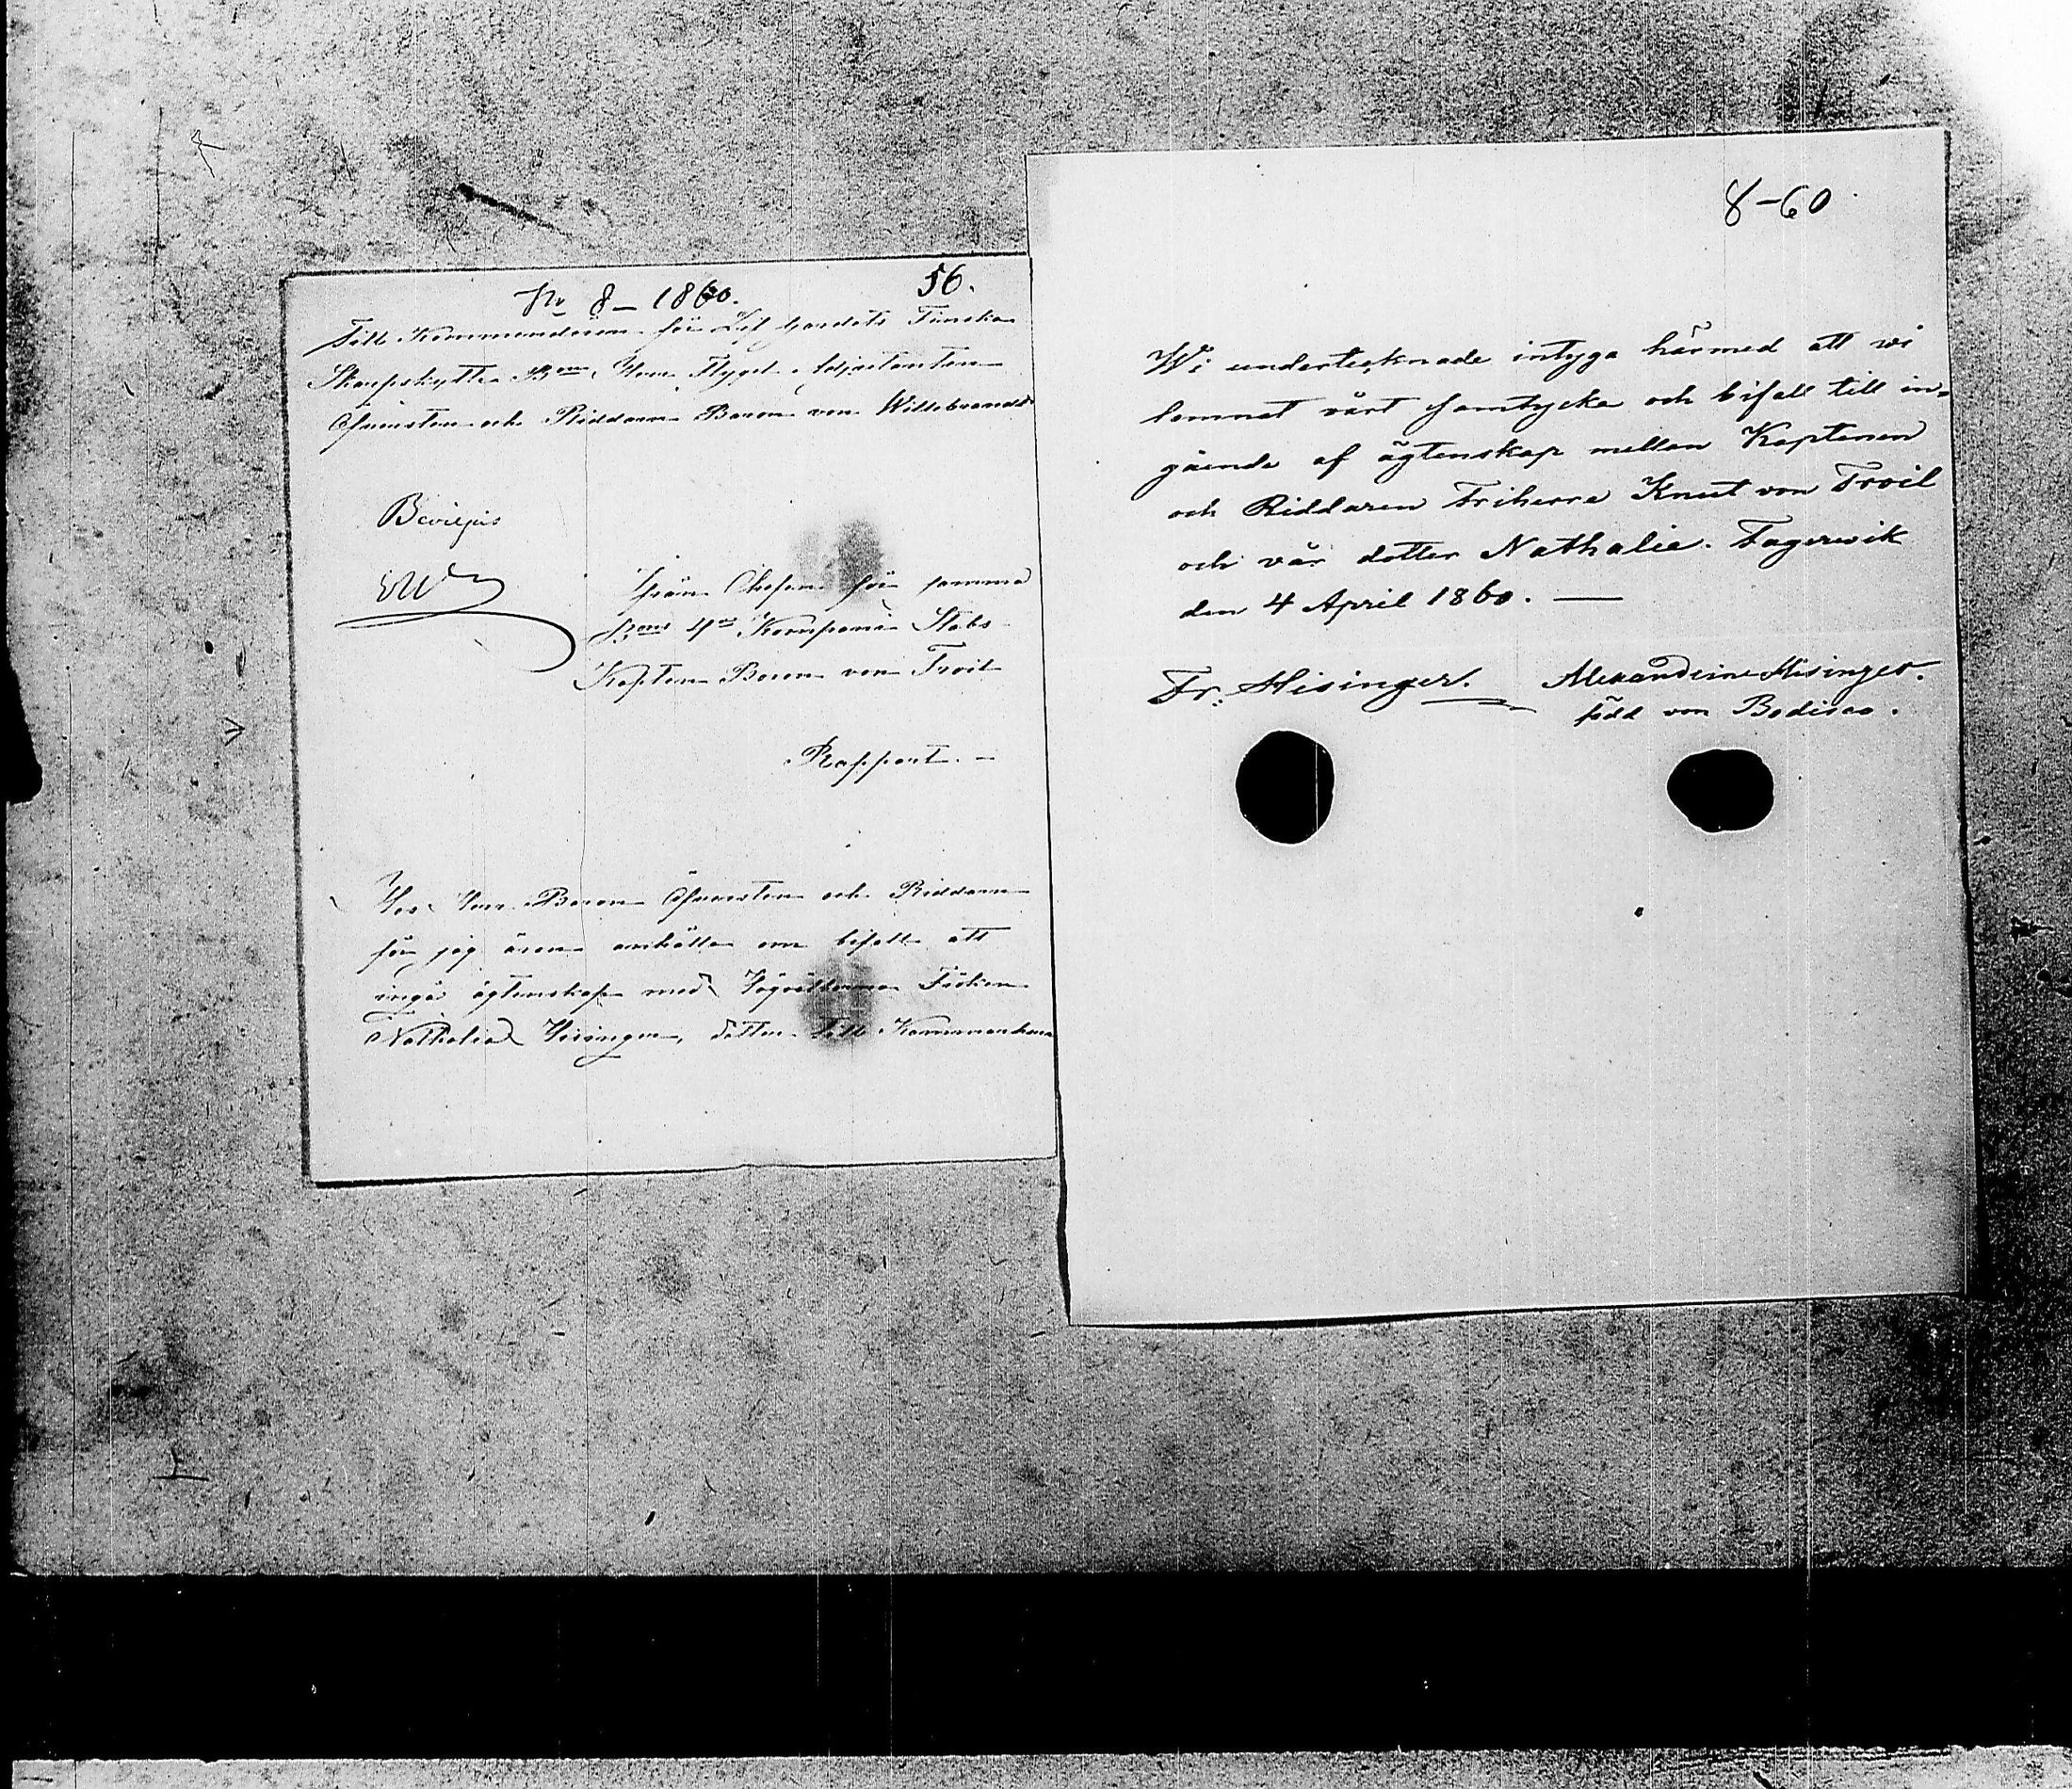 No 8 – 1860.
56.
Till Kommendören för Lif Gardets Finska
Skarpskytte Bon, Herr Flygel Adjutanten
Öfversten och Riddaren Baron von Willebrandt
Beviljas
Från Chefen för samma
Bons 4de Kompani Stabs
Kapten Baron von Troil
Rapport. –
Hos Herr Baron Öfversten och Riddaren
får jag äran anhålla om bifall att
ingå ägtenskap med Högvälborna Fröken
Nathalie Hisinger, dotter till
8–60
Wi undertecknade intyga härmed att wi
lemnat vårt samtycke och bifall till in=
gående af ägtenskap mellan Kaptenen
och Riddaren Friherre Knut von Troil
och vår dotter Nathalie. Fagervik
den 4 April 1860. —
Fr. Hisinger. Alexandrine Hisinger.
född von Bodisco.